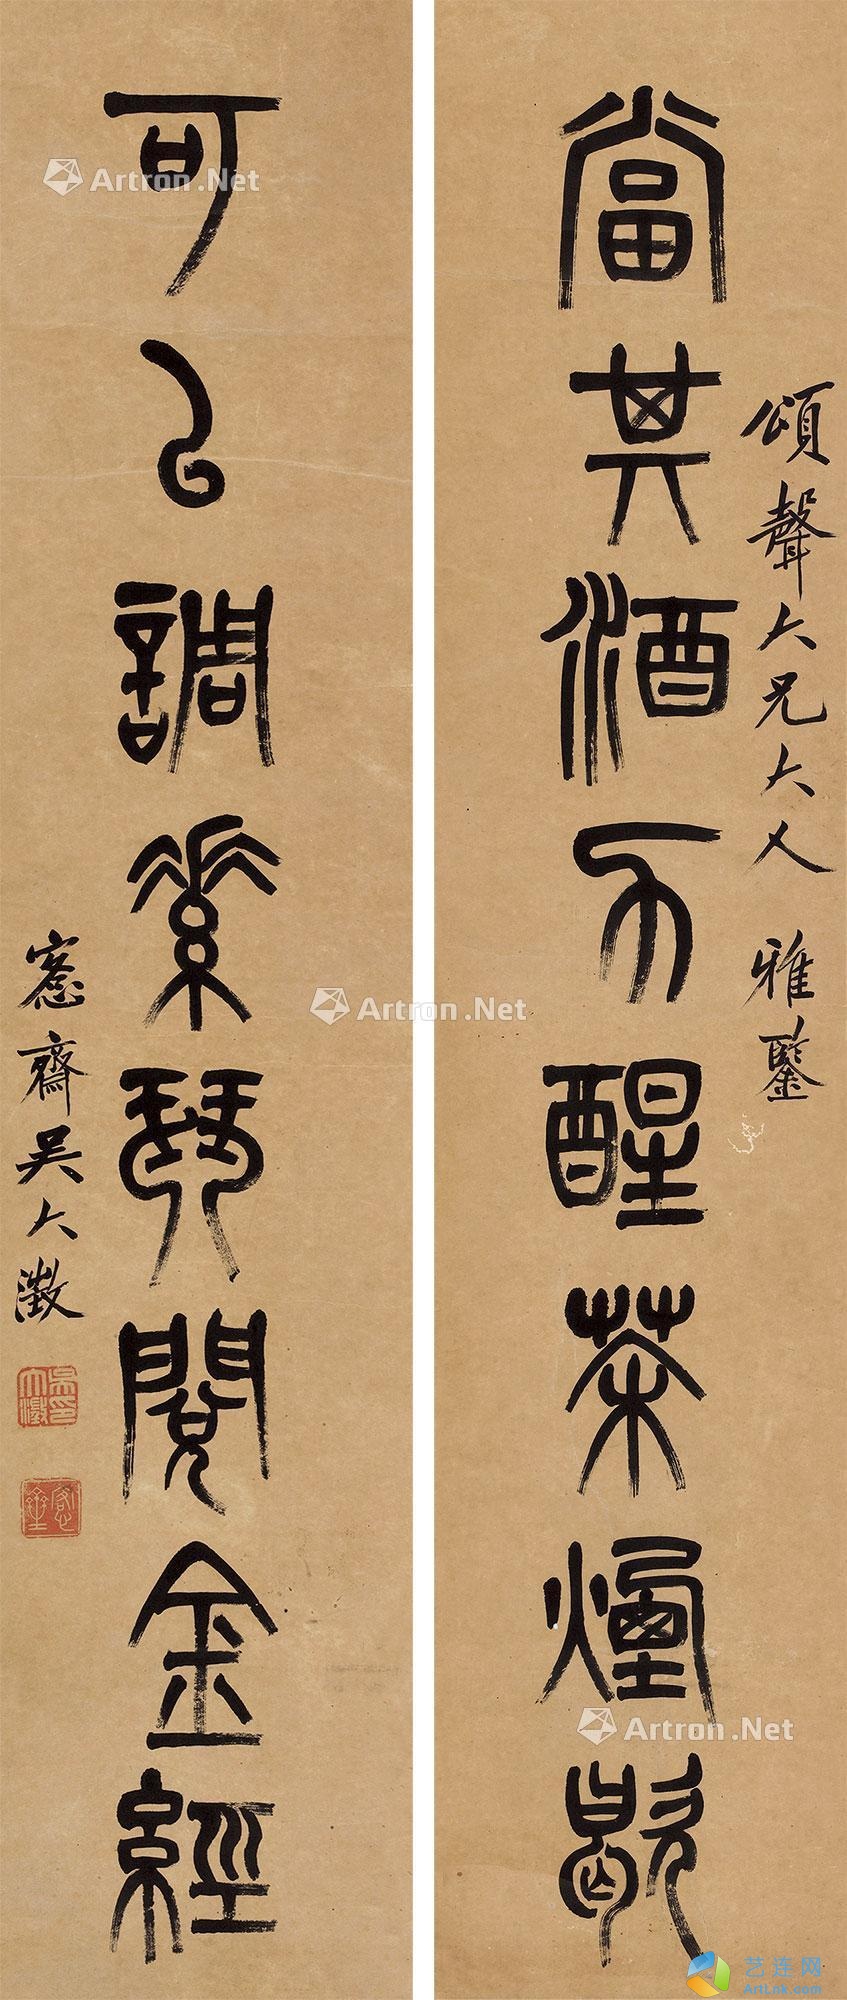 當其酒不醒茶煙歇
頌聲大兄大人 雅鑒
可以調素琴閱金經
愙齋吳大澂
吳大澂印
愙齋
Artron.Net
Artron.Net
Artron.Net
艺连网
ArtLnk.com